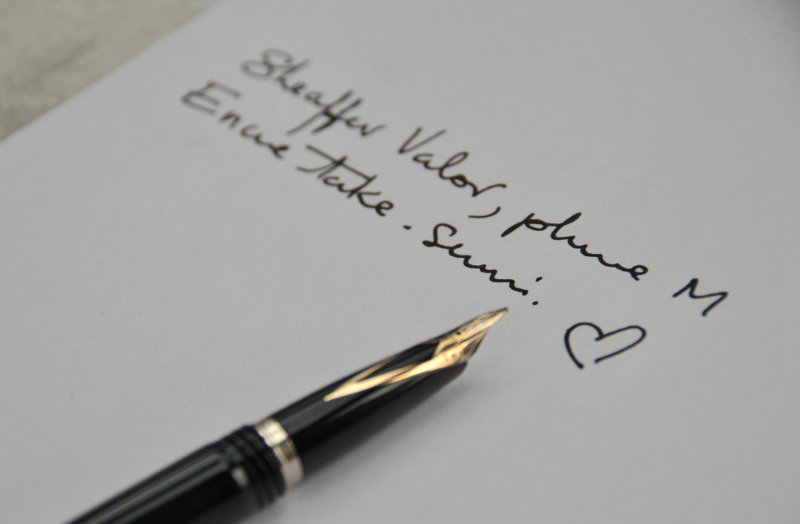 Sheaffer Valor, plume M
Encre take-sumi.